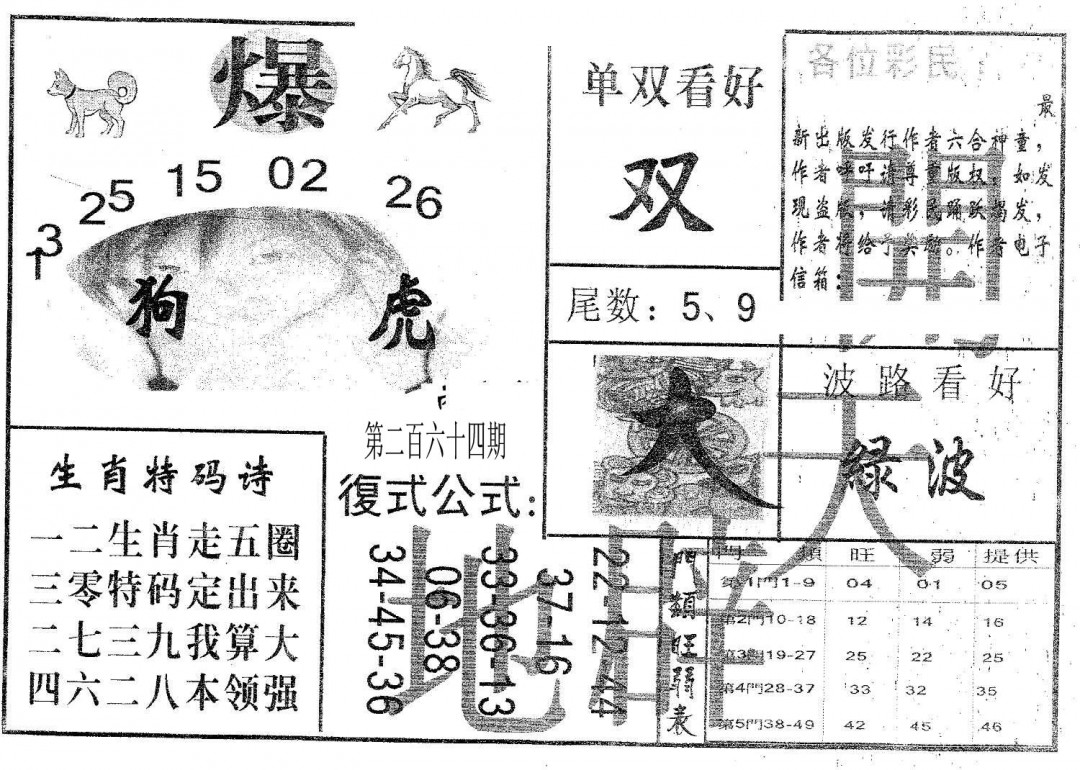 爆
3 25 15 02 26
1
狗 虎
单双看好
双
尾数：5、9
各位彩民：
最
新出版发行作者六合神童，
作者呼吁请尊重版权，如发
现盗版，请彩民踊跃揭发，
作者将给予奖励。作者电子
信箱：
開
大
波路看好
緑波
天
第二百六十四期
復式公式：
34-45-36
06-38
33-36-13
37-16
22-12-44
地
生肖特码诗
一二生肖走五圈
三零特码定出来
二七三九我算大
四六二八本领强
門類旺弱表
門 類 旺 弱 提供
第1門1-9 04 01 05
第2門10-18 12 14 16
第3門19-27 25 22 25
第4門28-37 33 32 35
第5門38-49 42 45 46